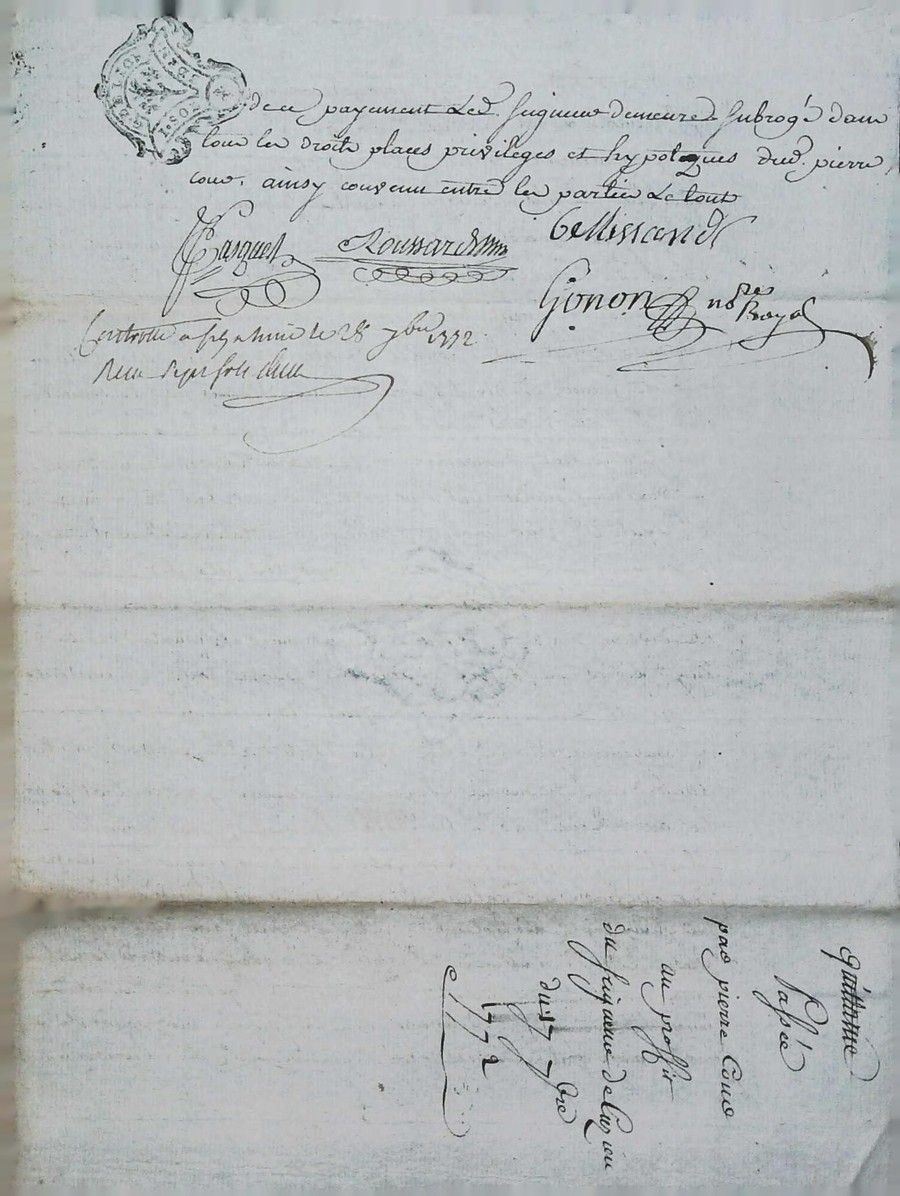 de ce payement Led. Seigneur demeure subrogé dans
tous les droits places privileges et hypoteques dud. pierre
cour, ainsy convenu entre les parties Le tout
Gellissand
Pasquet Roussard
Gonon no.re Royal
Controllé a le 28 7bre 1772
Reçu sols
quittance
Passée
par pierre Cour
au proffit
du seigneur de
du 17 7bre
1772